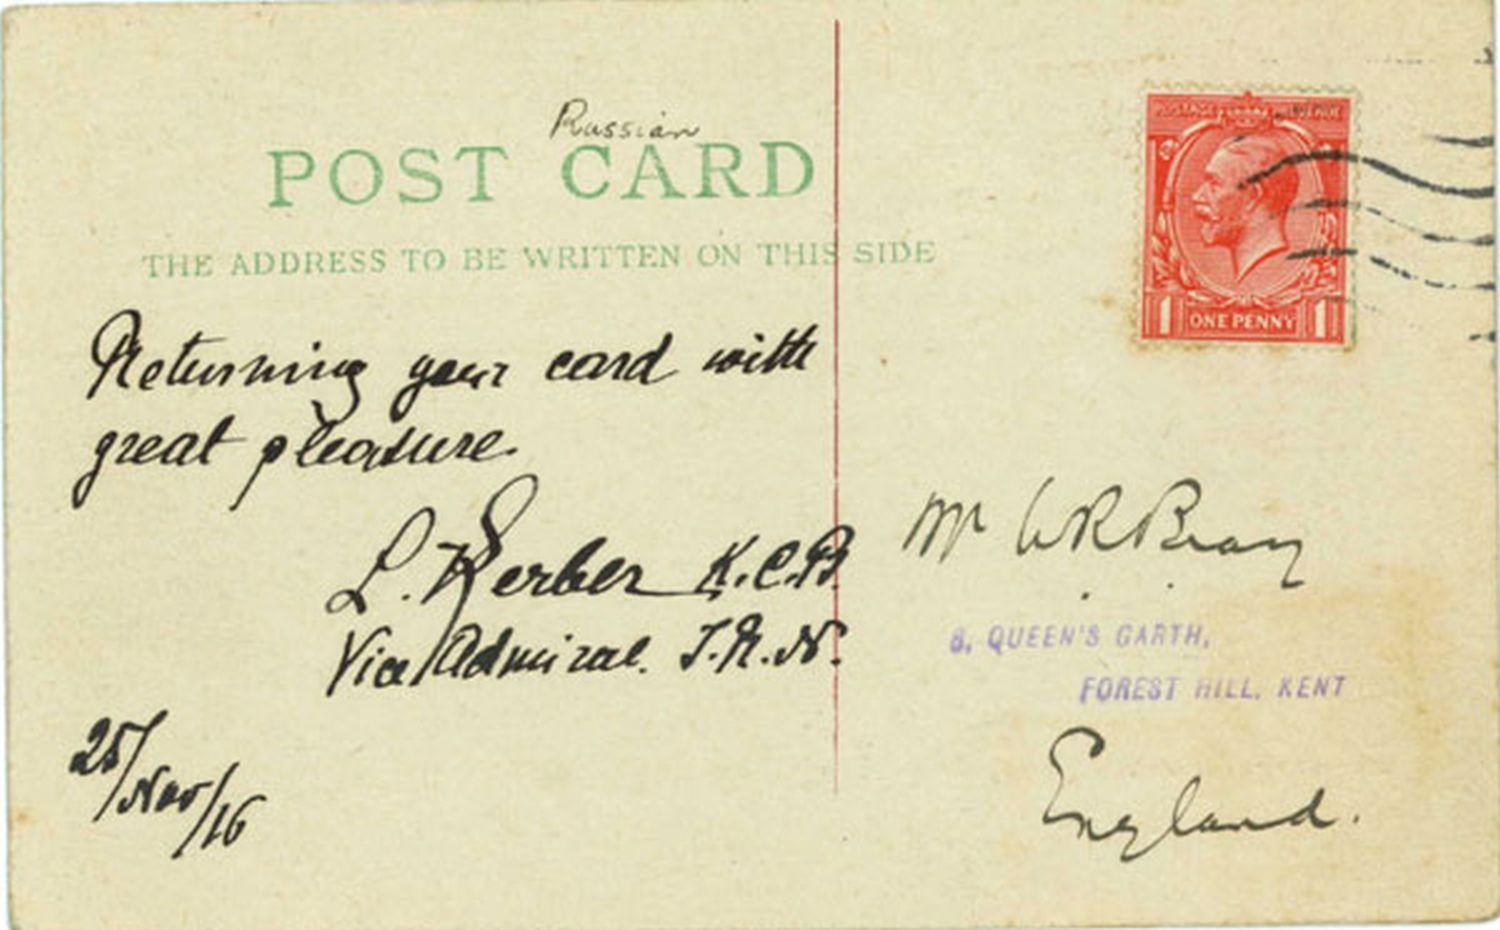 Russian
POST CARD
THE ADDRESS TO BE WRITTEN ON THIS SIDE
POSTAGE REVENUE
1 ONE PENNY 1
Returning your card with
great pleasure.
L. Kerber K.C.B.
Vice Admiral. I.R.N.
25/Nov/16
Mr W R Bray
8, QUEEN'S GARTH,
FOREST HILL, KENT
England.